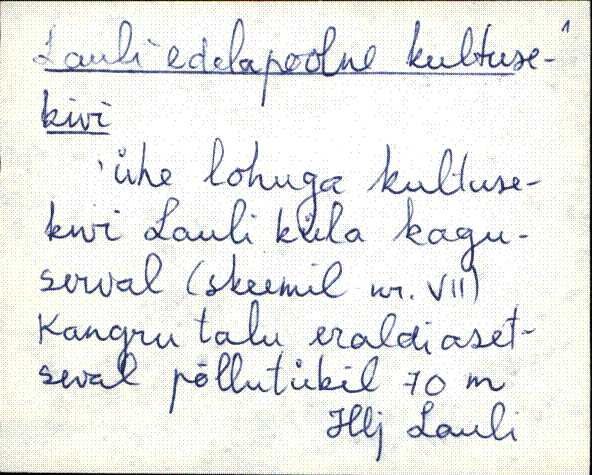 Lauli edelapoolne kultuse-
kivi
ühe lohuga kultuse-
kivi Lauli küla kagu-
serval (skeemil nr. VII)
Kangru talu eraldiaset-
seval põllutükil 70 m
Hlj Lauli